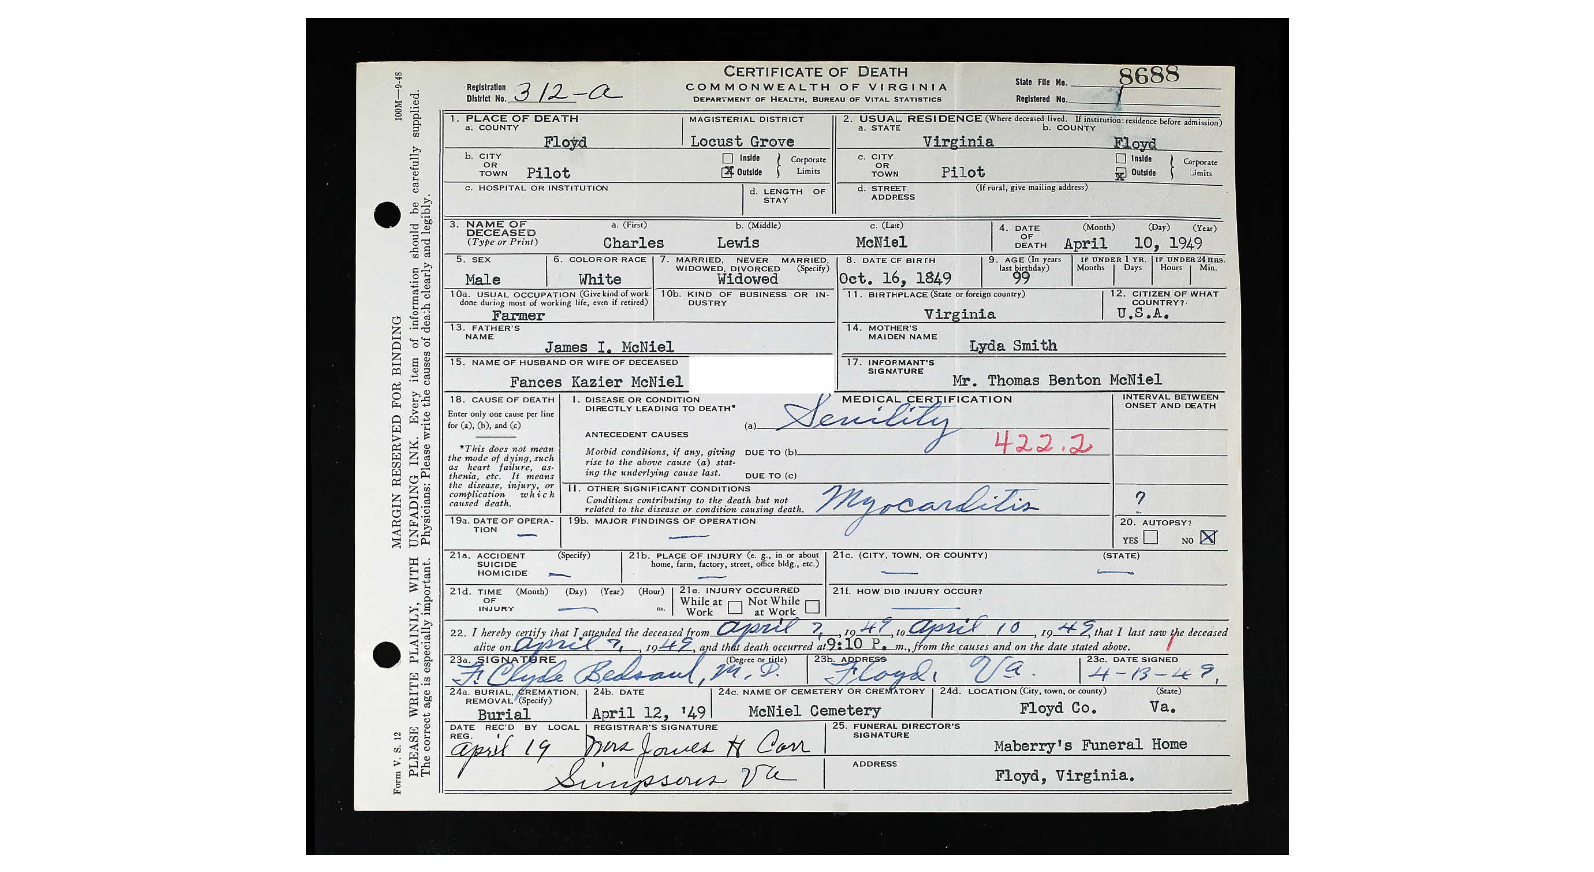 CERTIFICATE OF DEATH
COMMONWEALTH OF VIRGINIA
DEPARTMENT OF HEALTH, BUREAU OF VITAL STATISTICS
Registration District No. 312-a
State File No. 8688
Registered No. 1
1. PLACE OF DEATH
a. COUNTY
Floyd
MAGISTERIAL DISTRICT
Locust Grove
2. USUAL RESIDENCE (Where deceased lived. If institution: residence before admission)
a. STATE
Virginia
b. COUNTY
Floyd
b. CITY OR TOWN Pilot
Inside
X Outside
Corporate Limits
c. CITY OR TOWN Pilot
Inside
X Outside
Corporate Limits
c. HOSPITAL OR INSTITUTION
d. LENGTH OF STAY
d. STREET ADDRESS
(If rural, give mailing address)
3. NAME OF DECEASED (Type or Print)
a. (First)
Charles
b. (Middle)
Lewis
c. (Last)
McNiel
4. DATE OF DEATH
(Month) (Day) (Year)
April 10, 1949
5. SEX
Male
6. COLOR OR RACE
White
7. MARRIED, NEVER MARRIED, WIDOWED, DIVORCED (Specify)
Widowed
8. DATE OF BIRTH
Oct. 16, 1849
9. AGE (In years last birthday)
99
IF UNDER 1 YR.
Months Days
IF UNDER 24 HRS.
Hours Min.
10a. USUAL OCCUPATION (Give kind of work done during most of working life, even if retired)
Farmer
10b. KIND OF BUSINESS OR INDUSTRY
11. BIRTHPLACE (State or foreign country)
Virginia
12. CITIZEN OF WHAT COUNTRY?
U.S.A.
13. FATHER'S NAME
James I. McNiel
14. MOTHER'S MAIDEN NAME
Lyda Smith
15. NAME OF HUSBAND OR WIFE OF DECEASED
Fances Kazier McNiel
17. INFORMANT'S SIGNATURE
Mr. Thomas Benton McNiel
18. CAUSE OF DEATH
Enter only one cause per line for (a), (b), and (c)
*This does not mean the mode of dying, such as heart failure, asthenia, etc. It means the disease, injury, or complication which caused death.
MEDICAL CERTIFICATION
INTERVAL BETWEEN ONSET AND DEATH
I. DISEASE OR CONDITION DIRECTLY LEADING TO DEATH*
(a) Senility
422.2
ANTECEDENT CAUSES
Morbid conditions, if any, giving rise to the above cause (a) stating the underlying cause last.
DUE TO (b)
DUE TO (c)
II. OTHER SIGNIFICANT CONDITIONS
Conditions contributing to the death but not related to the disease or condition causing death.
Myocarditis
?
19a. DATE OF OPERATION
—
19b. MAJOR FINDINGS OF OPERATION
—
20. AUTOPSY?
YES NO X
21a. ACCIDENT SUICIDE HOMICIDE
(Specify)
—
21b. PLACE OF INJURY (e. g., in or about home, farm, factory, street, office bldg., etc.)
—
21c. (CITY, TOWN, OR COUNTY)
—
(STATE)
—
21d. TIME OF INJURY
(Month) (Day) (Year) (Hour)
— m.
21e. INJURY OCCURRED
While at Work
Not While at Work
21f. HOW DID INJURY OCCUR?
—
22. I hereby certify that I attended the deceased from April 7, 1949, to April 10, 1949, that I last saw the deceased
alive on April 7, 1949, and that death occurred at 9:10 P. m., from the causes and on the date stated above.
23a. SIGNATURE
(Degree or title)
F. Clyde Bedsaul, M.D.
23b. ADDRESS
Floyd, Va.
23c. DATE SIGNED
4-13-49.
24a. BURIAL, CREMATION, REMOVAL (Specify)
Burial
24b. DATE
April 12, '49
24c. NAME OF CEMETERY OR CREMATORY
McNiel Cemetery
24d. LOCATION (City, town, or county)
Floyd Co.
(State)
Va.
DATE REC'D BY LOCAL REG.
April 19
REGISTRAR'S SIGNATURE
Mrs James H Carr
Simpsons Va
25. FUNERAL DIRECTOR'S SIGNATURE
Maberry's Funeral Home
ADDRESS
Floyd, Virginia.
Form V. S. 12
MARGIN RESERVED FOR BINDING
100M—9-48
PLEASE WRITE PLAINLY, WITH UNFADING INK. Every item of information should be carefully supplied.
The correct age is especially important. Physicians: Please write the causes of death clearly and legibly.